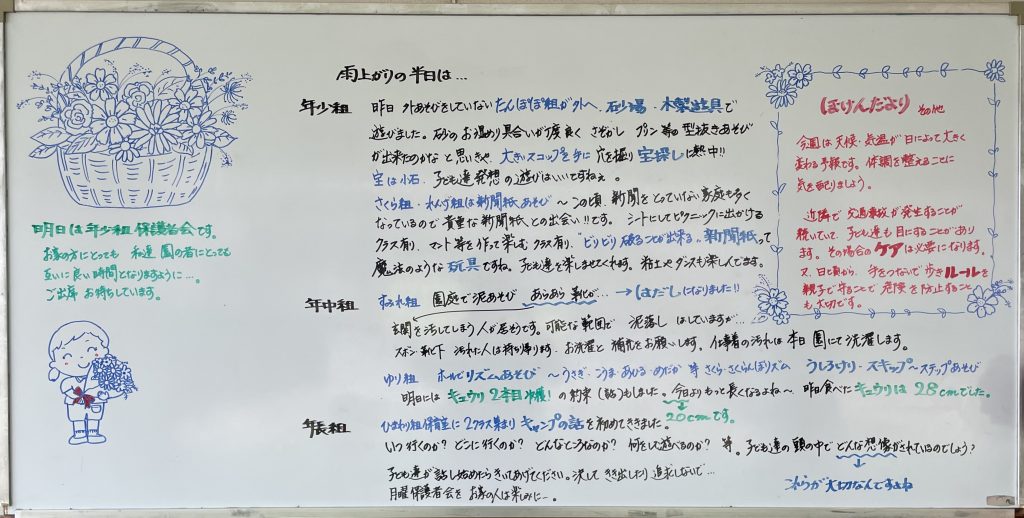 雨上がりの半日は…
年少組 昨日 外あそびをしていない たんぽぽ組が外へ、砂場・木製遊具で
遊びました。砂の お湿り具合いが 程良く さぞかし プリン 等の 型抜きあそび
が出来たのかな と 思いきや、大きいスコップを手に 穴を掘り 宝探しに熱中!!
宝は小石、子ども達発想の遊びはいいですねぇ。
さくら組・れんげ組は新聞紙あそび 〜 この頃、新聞を とっていない 家庭も多く
なっているので 貴重な新聞紙 との出会い!!です。 シートにしてピクニックに出かける
クラス有り、マット 等を作って楽しむ クラス有り、"ビリビリ 破ることが出来る" 新聞紙って
魔法のような 玩具ですね。子ども達を楽しませてくれます。粘土や ダンスも楽しんでます。
年中組 すみれ組 園庭で泥あそび あらあら 靴が… → はだしになりました!!
玄関を汚してしまう人が居そうです。可能な範囲で 泥落し はしていますが…
ズボン・靴下 汚れた人は持ち帰ります。お洗濯と 補充をお願いします。仕事着の汚れは 本日 園にて 洗濯します。
ゆり組 ホールでリズムあそび 〜 うさぎ・こうま・あひる・めだか 等 さくら・さくらんぼリズム うしろけり・スキップ〜ステップあそび
明日には キュウリ 2本目収穫! の約束(話)もしました。今日よりもって長くなるよね〜 昨日食べた キュウリは 28cmでした。
20cmです。
年長組 ひまわり組保育室に 2クラス集まり キャンプの話を 初めてききました。
いつ行くのか? どこに行くのか? どんなところなのか? 何をして遊べるのか? 等。子ども達の 頭の中で どんな想像がされているのでしょう?
子ども達が 話し始めたら きいてあげてください。決して きき出したり 追求しないで…
月曜保護者会を お家の人は楽しみに〜。
これらが 大切なんですよね
明日は年少組 保護者会です。
お家の方にとっても 私達 園の者にとっても
互いに良い時間となりますように…。
ご出席 お待ちしています。
ほけんだより その他
今週は 天候・気温が 日によって大きく
変わる予報です。体調を整えることに
気を配りましょう。
近隣で 交通事故が発生することが
続いていて、子ども達も 目にすることがあり
ます。その場合の ケアは必要になります。
又、日頃から、手をつないで歩き ルールを
親子で守ることで 危険を防止すること
も大切です。